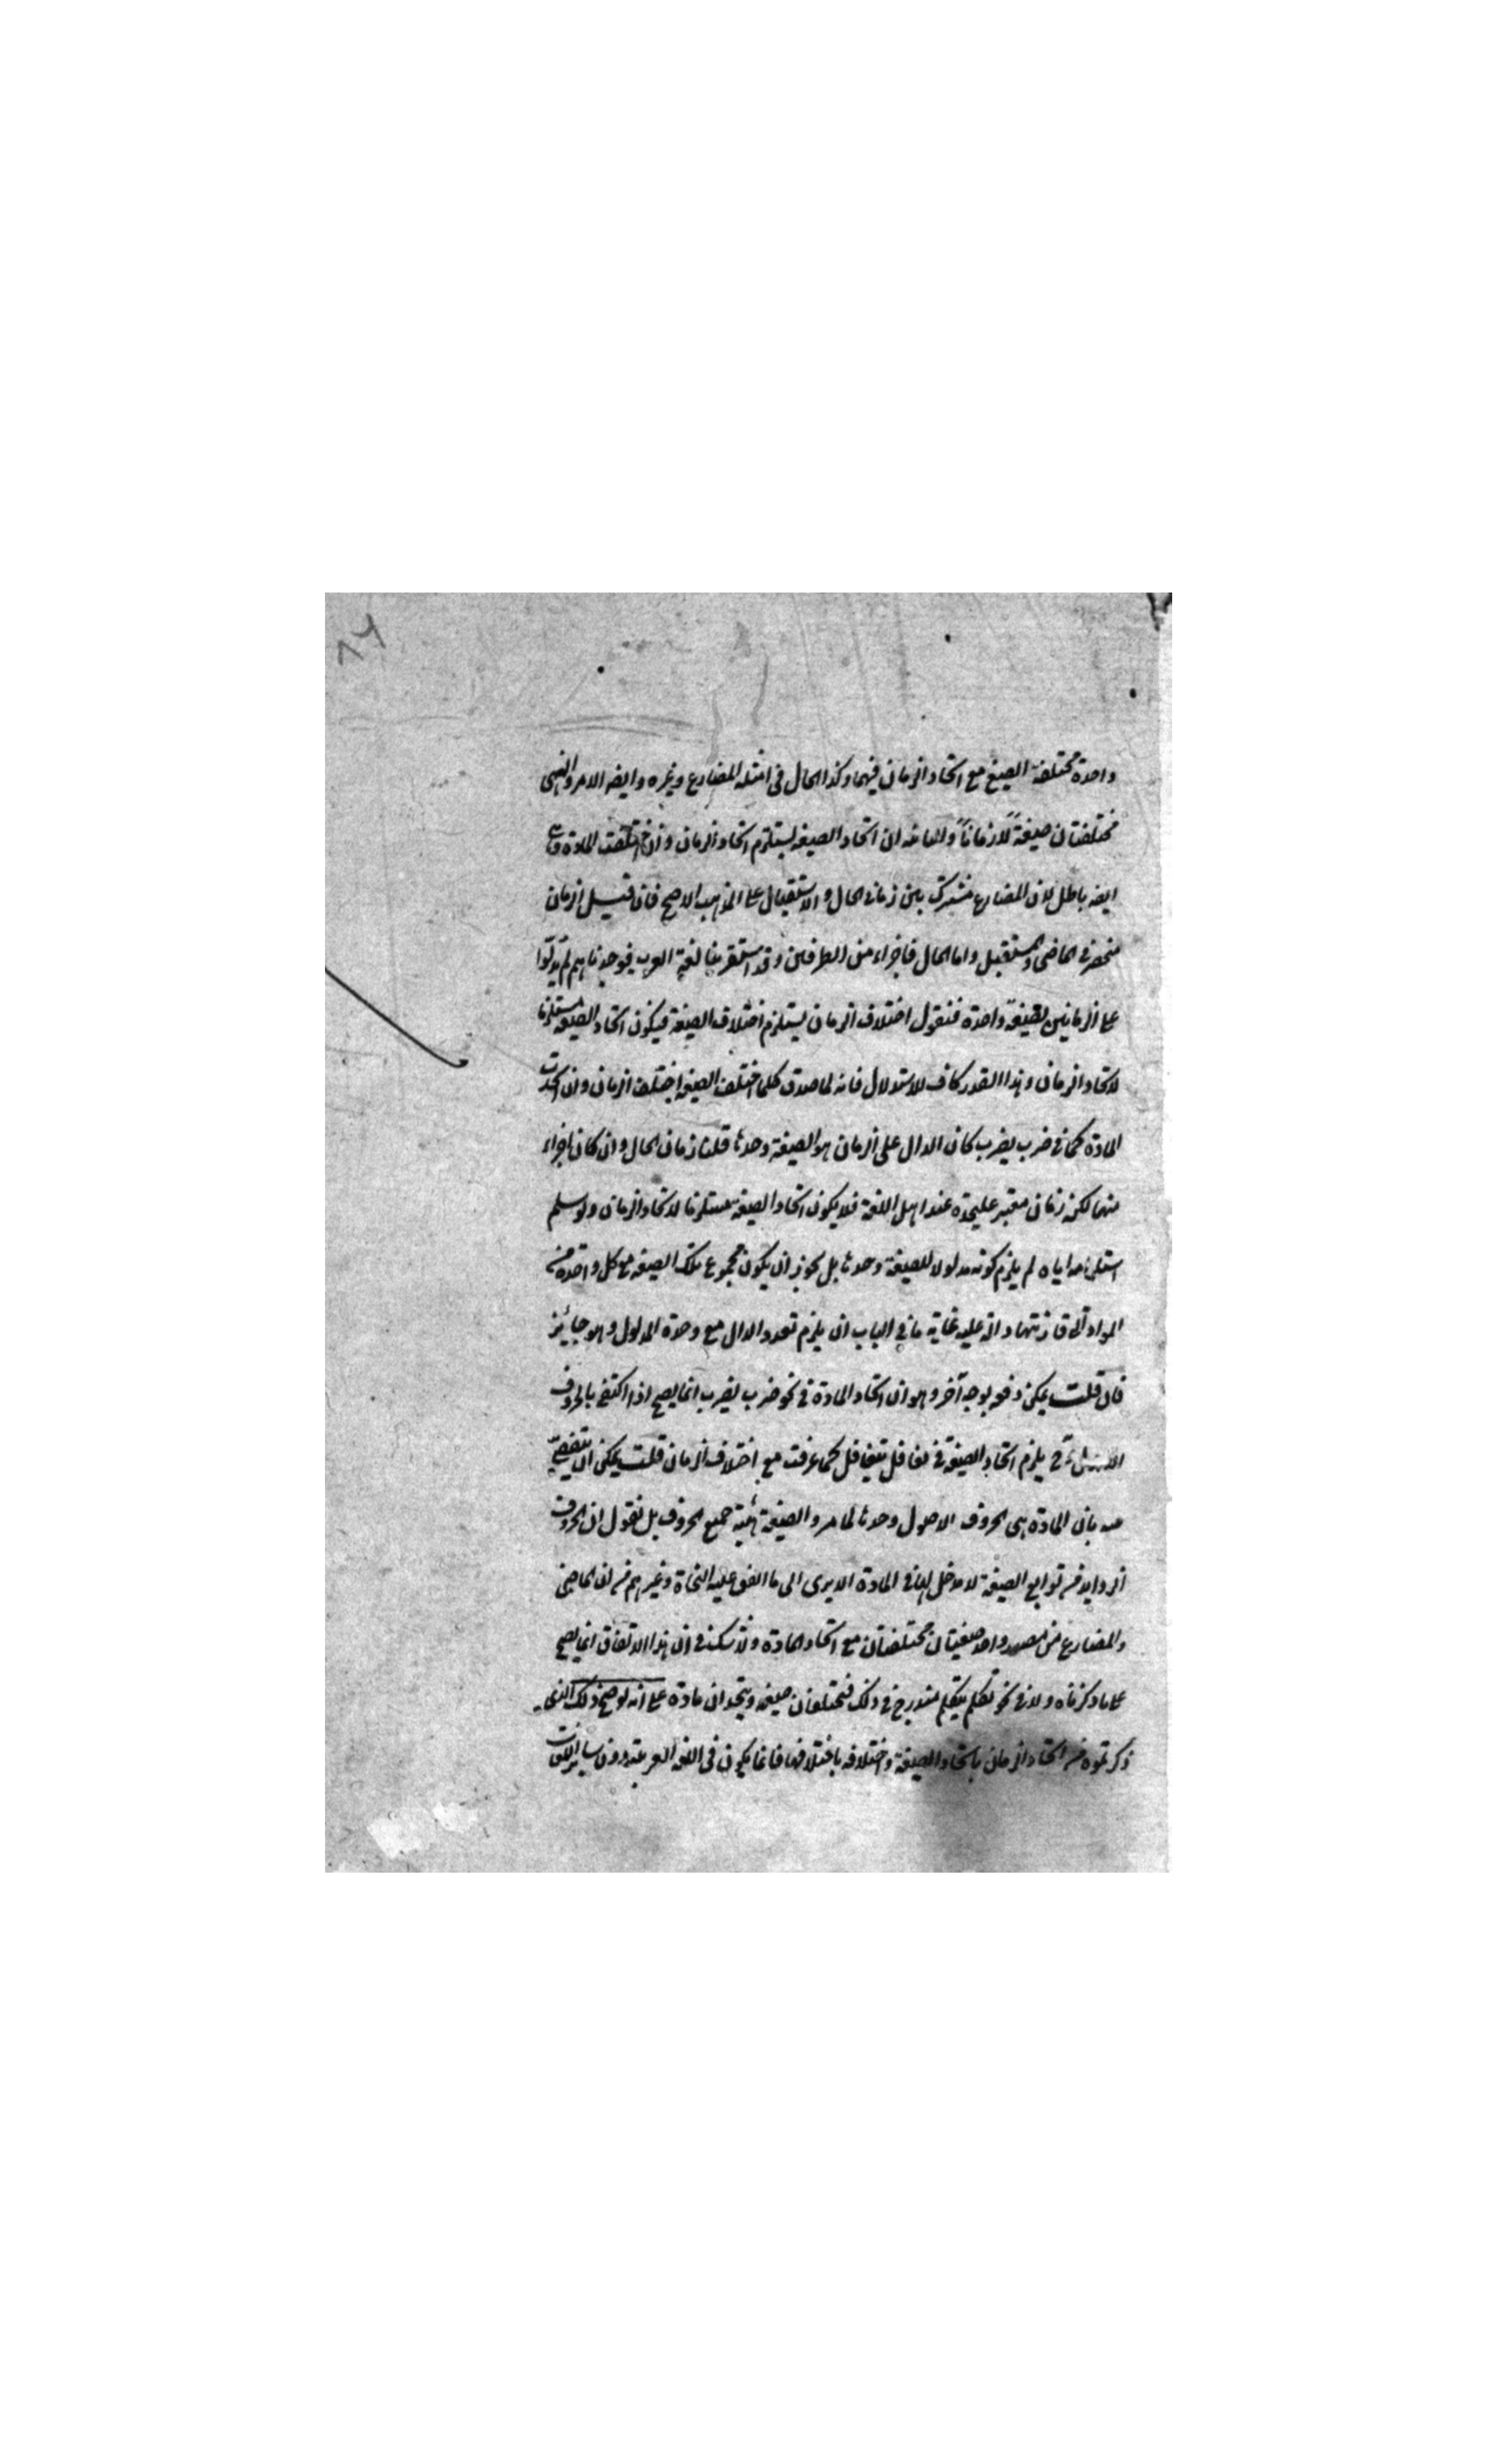 واحدة مختلفة الصيغ مع اتحاد الزمان فيهما وكذا الحال فى امثلة المضارع وغيره وايضه الامر والنهى
مختلفتان صيغةً لا زماناً واما انه ان اتحاد الصيغه يستلزم اتحاد الزمان وان اختلفت المادة
ايضه باطل لان المضارع مشترك بين زمانى الحال والاستقبال على المذهب الاصح فان قيل الزمان
منحصر فى الماضى والمستقبل واما الحال فاجزاء من الطرفين وقد استقرينا لغة العرب فوجدناهم لم يدلّوا
على الزمانين بصيغة واحدة فنقول اختلاف الزمان يستلزم اختلاف الصيغة فيكون اتحاد الصيغة مستلزما
لاتحاد الزمان وهذا القدر كاف للاستدلال فانه لما صدق كلما اختلف الصيغة اختلف الزمان وان اتحدت
المادة كما فى ضرب يضرب كان الدال على الزمان هو الصيغة وحدها قلنا زمان الحال وان كان اجزاء
منهما لكنه زمان معتبر عليحدة عند اهل اللغة فلا يكون اتحاد الصيغة مستلزما لاتحاد الزمان ولو سلم
استلزامه اياه لم يلزم كونه مدلولا للصيغة وحدها بل يجوز ان يكون مجموع تلك الصيغة مع كل واحدة من
المواد التى قارنتها دالة عليه غاية ما فى الباب ان يلزم تعدد الدال مع وحدة المدلول وهو جائز
فان قلت يمكن دفعه بوجه آخر وهو ان اتحاد المادة فى نحو ضرب يضرب انما يصح اذا اكتفى بالحروف
الاصلية فح يلزم اتحاد الصيغة فى تغافل يتغافل كما عرفت مع اختلاف الزمان قلت يمكن ان يتفصى
عنه بان المادة هى الحروف الاصول وحدها لما مر والصيغة هيئة جميع الحروف بل نقول ان الحروف
الزوايد من توابع الصيغة لا مدخل لها فى المادة الا يرى الى ما اتفق عليه النحاة وغيرهم من ان الماضى
والمضارع من مصدر واحد صيغتان مختلفتان مع اتحاد المادة ولا شك فى ان هذا الاتفاق انما يصح
على ما ذكرناه ولا فى نحو تكلم يتكلم مندرج فى ذلك فتختلفان صيغة ويتحدان مادة على انه لو صح ذلك الذى
ذكرتموه من اتحاد الزمان باتحاد الصيغة واختلافه باختلافها فانما يكون فى اللغة العربية دون ساير اللغات